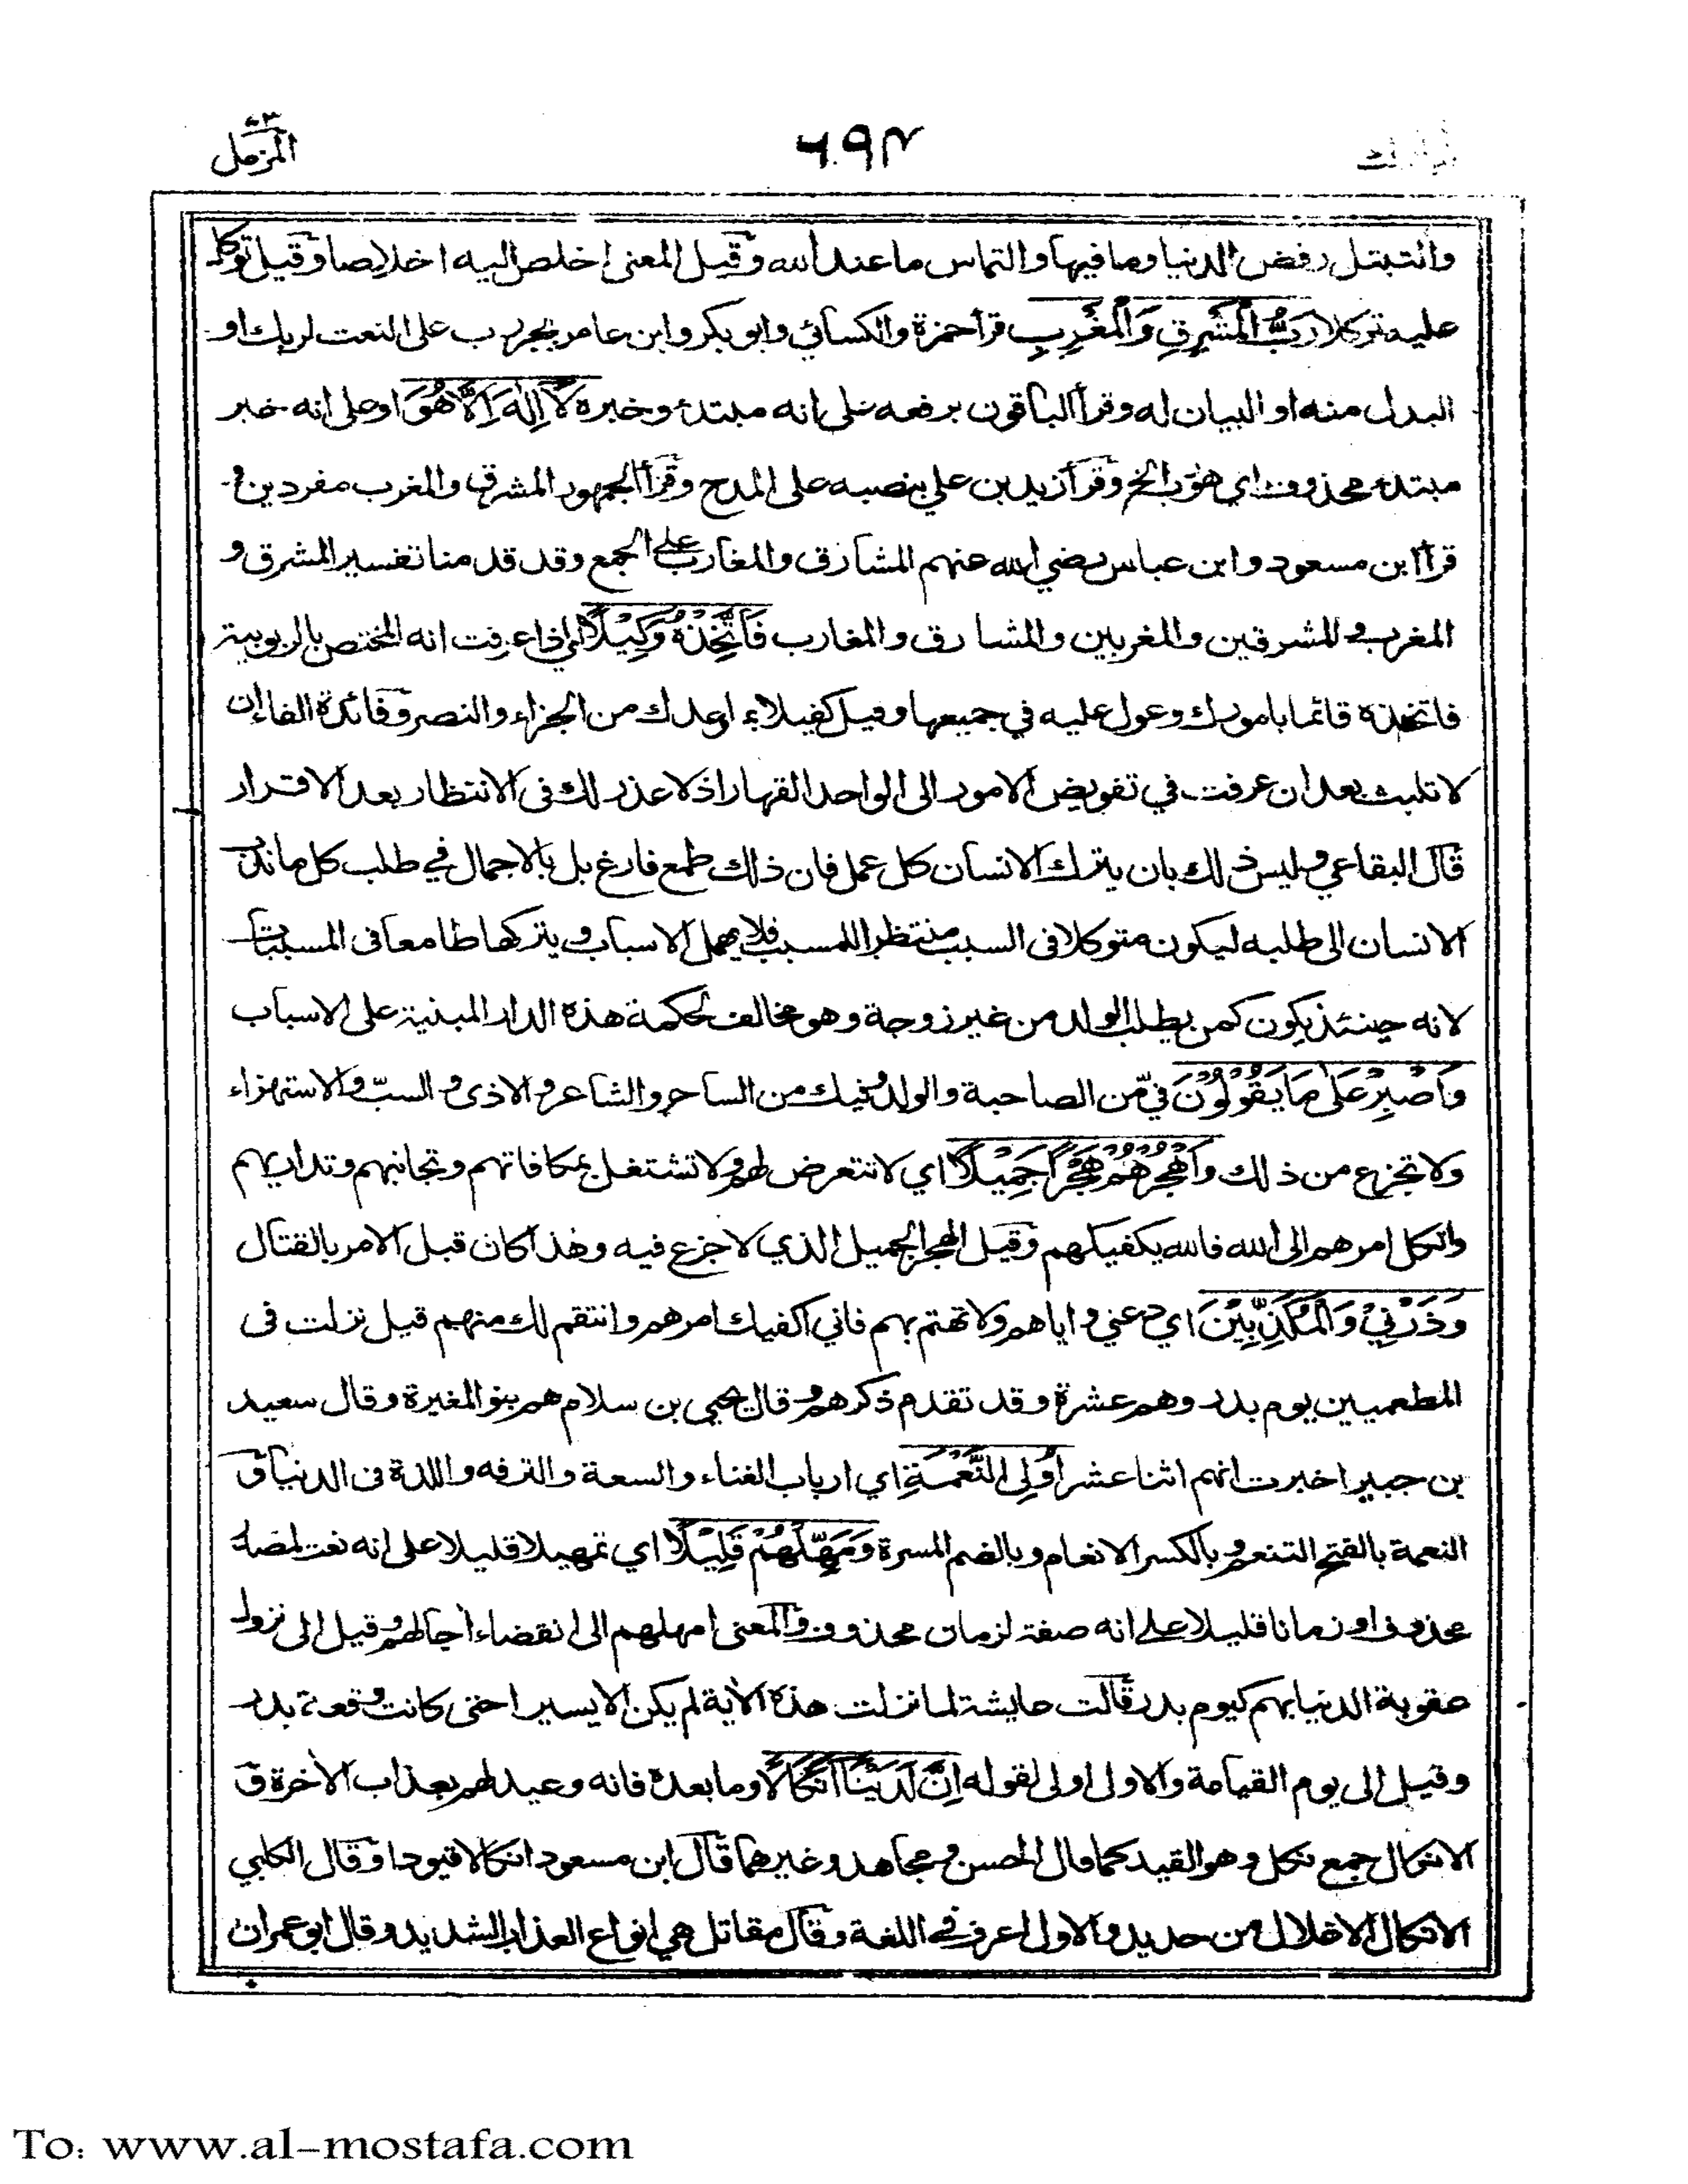 المزمل
٧٣
٦٩٤
والتبتل رفض الدنيا وما فيها والتماس ما عند الله وقيل المعنى اخلص اليه اخلاصا وقيل توكل
عليه توكلا رَبُّ الْمَشْرِقِ وَالْمَغْرِبِ قرأ حمزة والكسائي وابو بكر وابن عامر بجر رب على النعت لربك او
البدل منه او البيان له وقرأ الباقون برفعه على انه مبتدء وخبره لَا اِلٰهَ اِلَّا هُوَ او على انه خبر
مبتدء محذوف اي هو رب الخ وقرأ زيد بن علي بنصبه على المدح وقرأ الجمهور المشرق والمغرب مفردين و
قرأ ابن مسعود وابن عباس رضي الله عنهم المشارق والمغارب على الجمع وقد قدمنا تفسير المشرق و
المغرب و المشرقين والمغربين والمشارق والمغارب فَاتَّخِذْهُ وَكِيْلًا اي اذا عرفت انه المختص بالربوبية
فاتخذه قائما بامورك وعول عليه في جميعها وقيل كفيلا بما وعدك من الجزاء والنصر وفائدة الفاء ان
لا تلبث بعد ان عرفت في تفويض الامور الى الواحد القهار اذ لا عذر لك فى الانتظار بعد الاقرار
قال البقاعي وليس ذلك بان يترك الانسان كل عمل فان ذلك طمع فارغ بل بالاجمال في طلب كل ما ندب
الانسان الى طلبه ليكون متوكلا فى السبب منتظرا للمسبب فلا يهمل الاسباب و يتركها طامعا فى المسببات
لانه حينئذ يكون كمن يطلب الولد من غير زوجة وهو مخالف لحكمة هذه الدار المبنية على الاسباب
وَاصْبِرْ عَلٰى مَا يَقُوْلُوْنَ فيّ من الصاحبة والولد وفيك من الساحر والشاعر و الاذى و السبّ والاستهزاء
ولا تجزع من ذلك وَاهْجُرْهُمْ هَجْرًا جَمِيْلًا اي لا تتعرض لهم ولا تشتغل بمكافاتهم وتجانبهم وتداريهم
واتكل امرهم الى الله فالله يكفيكهم وقيل الهجر الجميل الذي لا جزع فيه وهذا كان قبل الامر بالقتال
وَذَرْنِيْ وَالْمُكَذِّبِيْنَ اي دعني و اياهم ولا تهتم بهم فاني اكفيك امرهم وانتقم لك منهم قيل نزلت فى
المطعمين يوم بدر وهم عشرة وقد تقدم ذكرهم و قال يحيى بن سلام هم بنو المغيرة وقال سعيد
بن جبير اخبرت انهم اثنا عشر اُولِى النَّعْمَةِ اي ارباب الغناء والسعة والترفه واللذة فى الدنيا و
النعمة بالفتح التنعم و بالكسر الانعام وبالضم المسرة وَمَهِّلْهُمْ قَلِيْلًا اي تمهيلا قليلا على انه نعت لمصدر
محذوف او زمانا قليلا على انه صفة لزمان محذوف والمعنى امهلهم الى انقضاء آجالهم وقيل الى نزول
عقوبة الدنيا بهم كيوم بدر قالت عايشة لما نزلت هذه الآية لم يكن الا يسيرا حتى كانت وقعة بدر
وقيل الى يوم القيامة والاولى اولى لقوله اِنَّ لَدَيْنَا اَنْكَالًا وما بعده فانه وعيد لهم بعذاب الآخرة و
الانكال جمع نكل وهو القيد كما قال الحسن و مجاهد وغيرهما قال ابن مسعود انكالا قيودا وقال الكلبي
الانكال الاغلال من حديد والاول اعرف في اللغة وقال مقاتل هي انواع العذاب الشديد وقال ابو عمران
To: www.al-mostafa.com